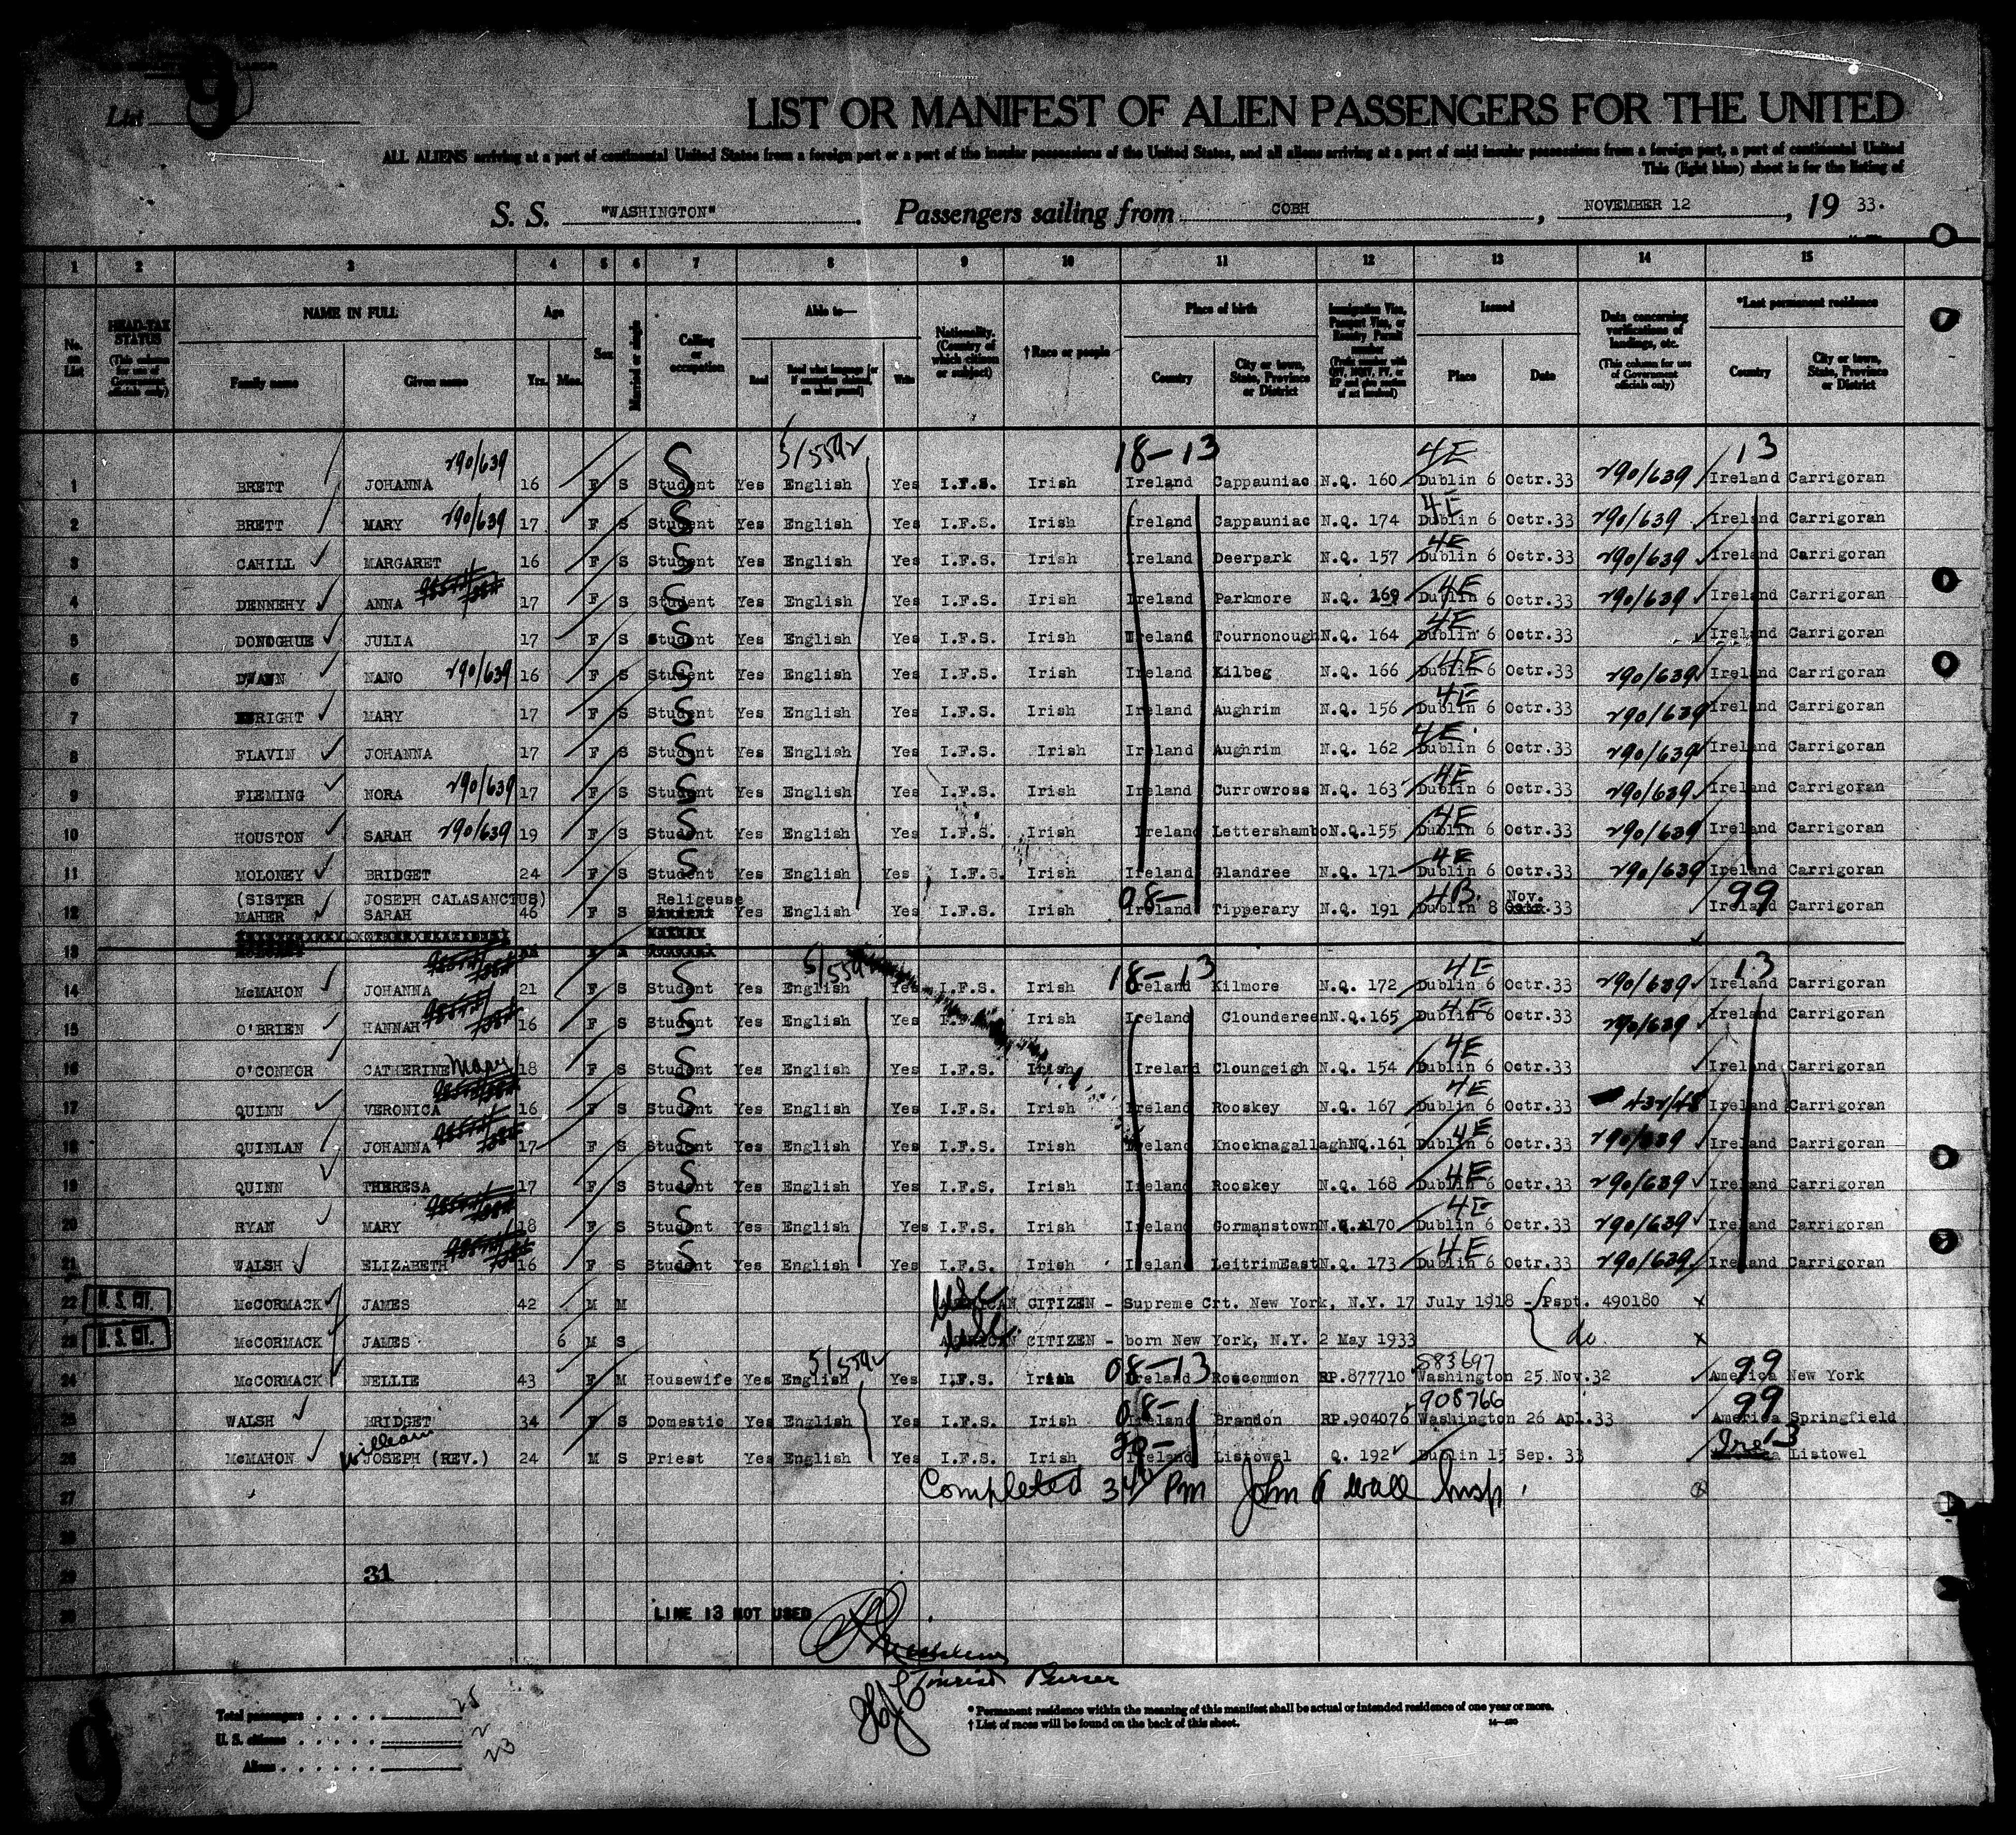 List 9
LIST OR MANIFEST OF ALIEN PASSENGERS FOR THE UNITED
ALL ALIENS arriving at a port of continental United States from a foreign port or a port of the insular possessions of the United States, and all aliens arriving at a port of said insular possessions from a foreign port, a port of continental United
This (light blue) sheet is for the listing of
S. S. "WASHINGTON" Passengers sailing from COBH, NOVEMBER 12, 19 33.
1 2 3 4 5 6 7 8 9 10 11 12 13 14 15
No. on List
HEAD-TAX STATUS (This column for use of Government officials only)
NAME IN FULL Family name Given name
Age Yrs. Mos.
Sex
Married or single
Calling or occupation
Able to— Read Read what language [or if exemption claimed, on what ground] Write
Nationality. (Country of which citizen or subject)
†Race or people
Place of birth Country City or town, State, Province or District
Immigration Visa, Passport Visa, or Reentry Permit number
Issued Place Date
Data concerning verifications of landings, etc. (This column for use of Government officials only)
*Last permanent residence Country City or town, State, Province or District
290/639 S 5/5592 18-13 4E 13
1 BRETT JOHANNA 16 F S Student Yes English Yes I.F.S. Irish Ireland Cappauniac N.Q. 160 Dublin 6 Octr.33 290/639 Ireland Carrigoran
2 BRETT MARY 290/639 17 F S Student Yes English Yes I.F.S. Irish Ireland Cappauniac N.Q. 174 4E Dublin 6 Octr.33 290/639 Ireland Carrigoran
3 CAHILL MARGARET 16 F S Student Yes English Yes I.F.S. Irish Ireland Deerpark N.Q. 157 4E Dublin 6 Octr.33 290/639 Ireland Carrigoran
4 DENNEHY ANNA 17 F S Student Yes English Yes I.F.S. Irish Ireland Parkmore N.Q. 169 4E Dublin 6 Octr.33 290/639 Ireland Carrigoran
5 DONOGHUE JULIA 17 F S Student Yes English Yes I.F.S. Irish Ireland Tournonough N.Q. 164 4E Dublin 6 Octr.33 Ireland Carrigoran
6 DWANN NANO 290/639 16 F S Student Yes English Yes I.F.S. Irish Ireland Kilbeg N.Q. 166 4E Dublin 6 Octr.33 290/639 Ireland Carrigoran
7 ENRIGHT MARY 17 F S Student Yes English Yes I.F.S. Irish Ireland Aughrim N.Q. 156 4E Dublin 6 Octr.33 290/639 Ireland Carrigoran
8 FLAVIN JOHANNA 17 F S Student Yes English Yes I.F.S. Irish Ireland Aughrim N.Q. 162 4E Dublin 6 Octr.33 290/639 Ireland Carrigoran
9 FLEMING NORA 290/639 17 F S Student Yes English Yes I.F.S. Irish Ireland Currowross N.Q. 163 4E Dublin 6 Octr.33 290/639 Ireland Carrigoran
10 HOUSTON SARAH 290/639 19 F S Student Yes English Yes I.F.S. Irish Ireland Lettershambo N.Q.155 4E Dublin 6 Octr.33 290/639 Ireland Carrigoran
11 MOLONEY BRIDGET 24 F S Student Yes English Yes I.F.S. Irish Ireland Glandree N.Q. 171 4E Dublin 6 Octr.33 290/639 Ireland Carrigoran
(SISTER JOSEPH CALASANCTUS) Religeuse 08- 4B. Nov. 99
12 MAHER SARAH 46 F S Yes English Yes I.F.S. Irish Ireland Tipperary N.Q. 191 Dublin 8 33 Ireland
13
5/5592 18-13 4E 13
14 McMAHON JOHANNA 21 F S Student Yes English Yes I.F.S. Irish Ireland Kilmore N.Q. 172 Dublin 6 Octr.33 290/639 Ireland Carrigoran
15 O'BRIEN HANNAH 16 F S Student Yes English Yes I.F.S. Irish Ireland Cloundereen N.Q.165 4E Dublin 6 Octr.33 290/639 Ireland Carrigoran
16 O'CONNOR CATHERINE Mary 18 F S Student Yes English Yes I.F.S. Irish Ireland Cloungeigh N.Q. 154 4E Dublin 6 Octr.33 Ireland Carrigoran
17 QUINN VERONICA 16 F S Student Yes English Yes I.F.S. Irish Ireland Rooskey N.Q. 167 4E Dublin 6 Octr.33 Ireland Carrigoran
18 QUINLAN JOHANNA 17 F S Student Yes English Yes I.F.S. Irish Ireland Knocknagallagh NQ.161 4E Dublin 6 Octr.33 290/639 Ireland Carrigoran
19 QUINN THERESA 17 F S Student Yes English Yes I.F.S. Irish Ireland Rooskey N.Q. 168 4E Dublin 6 Octr.33 290/639 Ireland Carrigoran
20 RYAN MARY 18 F S Student Yes English Yes I.F.S. Irish Ireland Gormanstown N.Q. 170 4E Dublin 6 Octr.33 290/639 Ireland Carrigoran
21 WALSH ELIZABETH 16 F S Student Yes English Yes I.F.S. Irish Ireland LeitrimEast N.Q. 173 4E Dublin 6 Octr.33 290/639 Ireland Carrigoran
22 U. S. CIT. McCORMACK JAMES 42 M M USC AMERICAN CITIZEN - Supreme Crt. New York, N.Y. 17 July 1918 - Pspt. 490180 x
23 U. S. CIT. McCORMACK JAMES 6 M S USC AMERICAN CITIZEN - born New York, N.Y. 2 May 1933 do x
5/5592 08-13 583697 99
24 McCORMACK NELLIE 43 F M Housewife Yes English Yes I.F.S. Irish Ireland Roscommon RP.877710 Washington 25 Nov.32 America New York
08- 908766 99
25 WALSH BRIDGET 34 F S Domestic Yes English Yes I.F.S. Irish Ireland Brandon RP.904076 Washington 26 Apl.33 America Springfield
William 13
26 McMAHON JOSEPH (REV.) 24 M S Priest Yes English Yes I.F.S. Irish Ireland Listowel Q. 192 Dublin 15 Sep. 33 Ire Listowel
27 Completed Pm John Wall Insp.
28
29 31
30 LINE 13 NOT USED
Tourist Purser
Total passengers 25
U. S. citizens 2
Aliens 23
* Permanent residence within the meaning of this manifest shall be actual or intended residence of one year or more.
† List of races will be found on the back of this sheet.
9